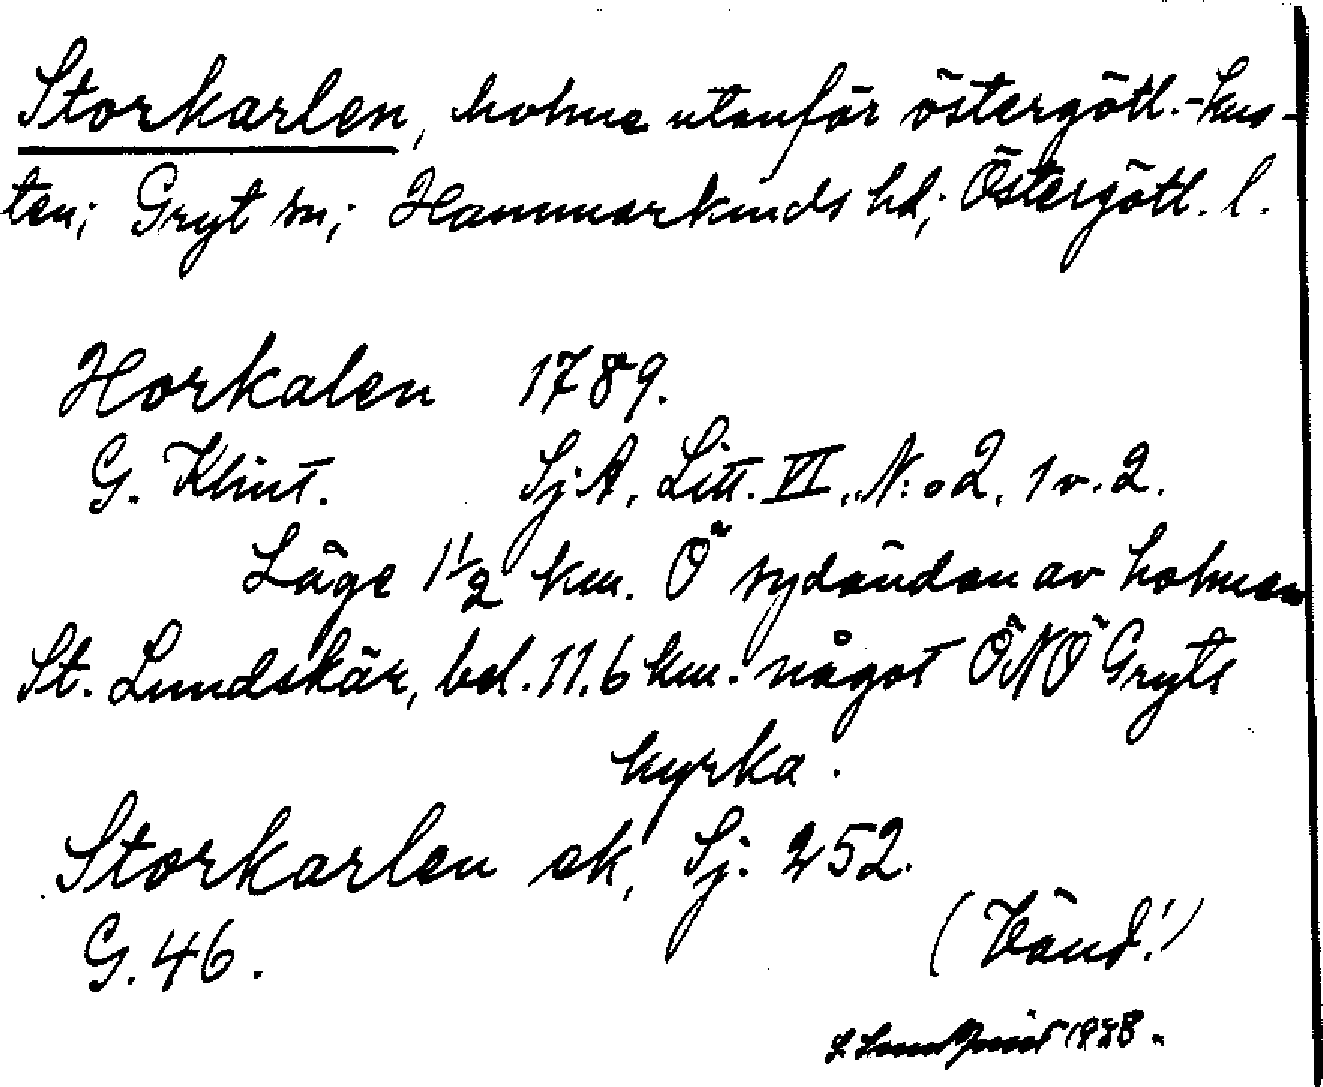 Storkarlen, holme utanför östergötl.-kus-
ten; Gryt sn; Hammarkinds hd; Östergötl. l.
Horkalen 1789.
G. Klint. SjA, Litt. VI, N:o 2, 1 v. 2.
Läge 1 1/2 km. Ö sydändan av holmen
St. Lundskär, bel. 11.6 km. något ÖNÖ Gryts
kyrka.
Storkarlen ek, Sj. 252.
G. 46.
(Vänd!)